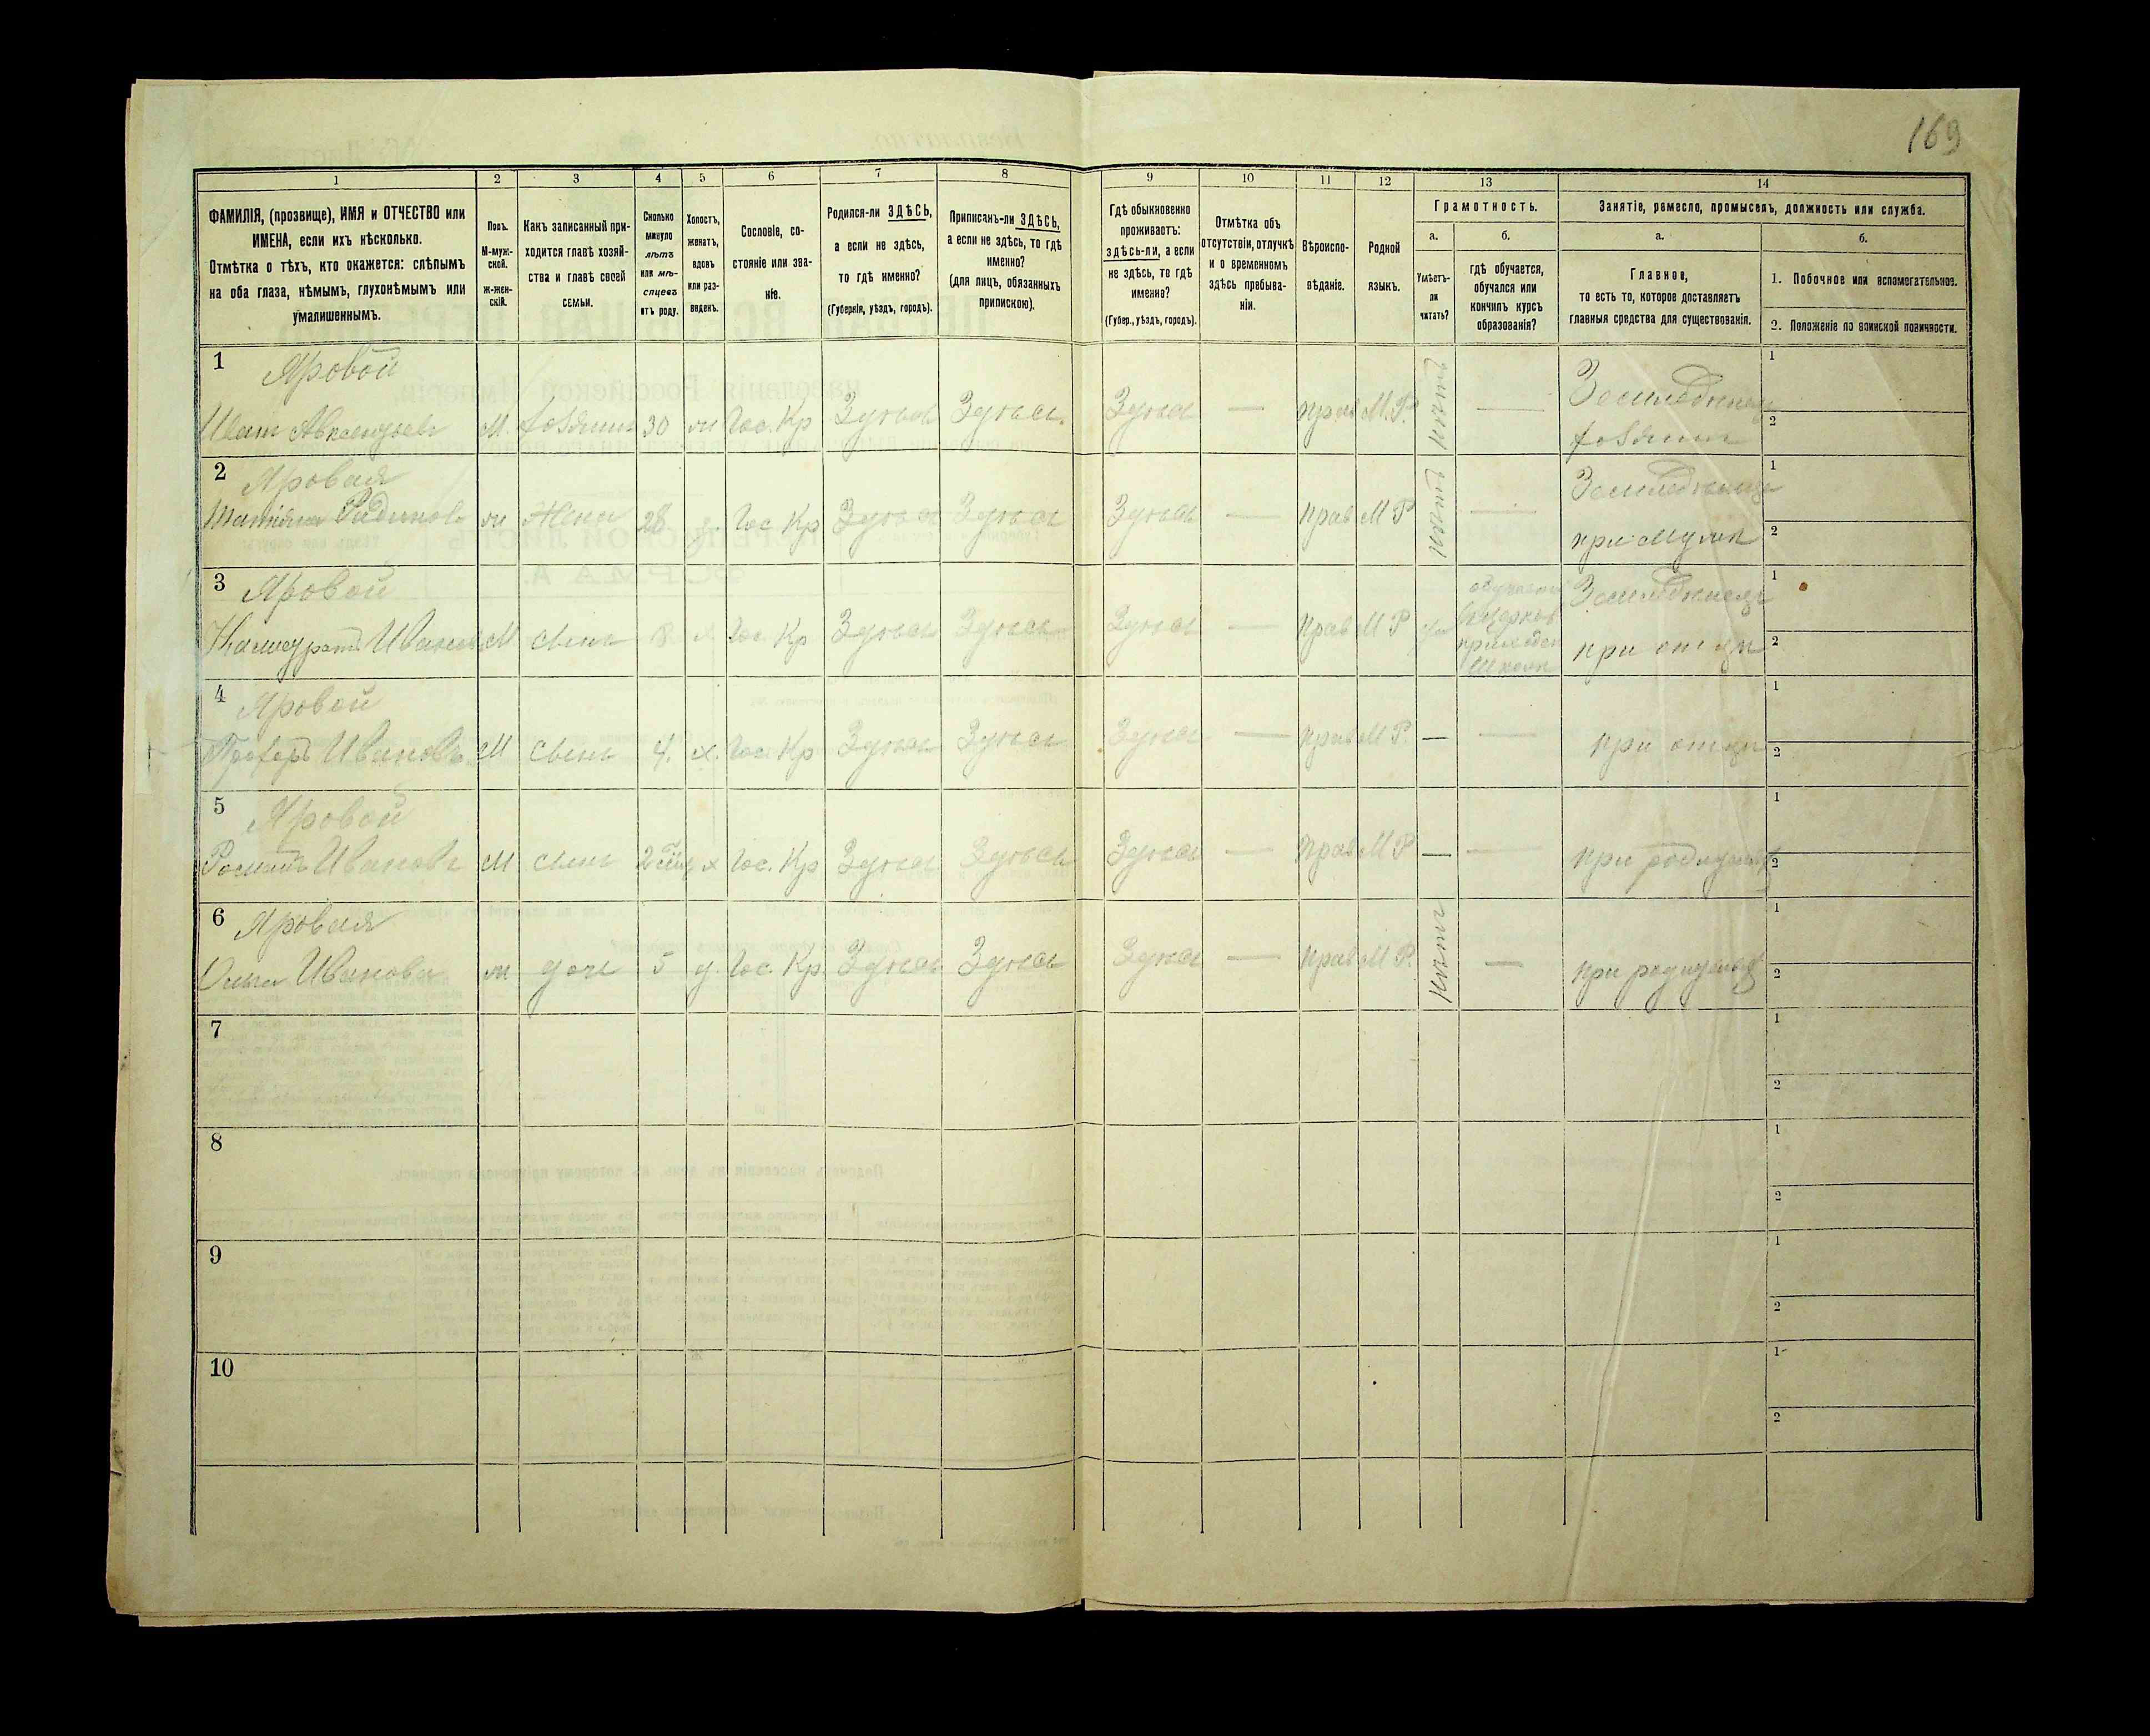 169
1 2 3 4 5 6 7 8 9 10 11 12 13 14
ФАМИЛІЯ, (прозвище), ИМЯ и ОТЧЕСТВО или
ИМЕНА, если ихъ нѣсколько.
Отмѣтка о тѣхъ, кто окажется: слѣпымъ
на оба глаза, нѣмымъ, глухонѣмымъ или
умалишеннымъ.
Полъ.
М-муж-
ской.
ж-жен-
скій.
Какъ записанный при-
ходится главѣ хозяй-
ства и главѣ своей
семьи.
Сколько
минуло
лѣтъ
или мѣ-
сяцевъ
отъ роду.
Холостъ,
женатъ,
вдовъ
или раз-
веденъ.
Сословіе, со-
стояніе или зва-
ніе.
Родился-ли ЗДѢСЬ,
а если не здѣсь,
то гдѣ именно?
(Губернія, уѣздъ, городъ).
Приписанъ-ли ЗДѢСЬ,
а если не здѣсь, то гдѣ
именно?
(для лицъ, обязанныхъ
припискою).
Гдѣ обыкновенно
проживаетъ:
здѣсь-ли, а если
не здѣсь, то гдѣ
именно?
(Губер., уѣздъ, городъ).
Отмѣтка объ
отсутствіи, отлучкѣ
и о временномъ
здѣсь пребыва-
ніи.
Вѣроиспо-
вѣданіе.
Родной
языкъ.
Грамотность.
а. б.
Умѣетъ-
ли
читать?
гдѣ обучается,
обучался или
кончилъ курсъ
образованія?
Занятіе, ремесло, промыселъ, должность или служба.
а. б.
Главное,
то есть то, которое доставляетъ
главныя средства для существованія.
1. Побочное или вспомогательное.
2. Положеніе по воинской повинности.
1 Яровой 1
Иван М. 30 Гос. Кр Здѣсь Здѣсь Здѣсь — прав М.Р. нѣтъ — 2
2 Яровая 1
жена 28 Гос. Кр Здѣсь Здѣсь Здѣсь — прав М Р нѣтъ — при мужѣ 2
3 Яровой обучается 1
М сынъ 8 Гос. Кр Здѣсь Здѣсь Здѣсь — прав М Р при отцѣ 2
школѣ
4 Яровой 1
Ивановъ М сынъ 4. х. Гос. Кр Здѣсь Здѣсь Здѣсь — прав М Р. — — при отцѣ 2
5 Яровой 1
Романъ Ивановъ М сынъ 2 х Гос. Кр Здѣсь Здѣсь Здѣсь — прав М Р — — при 2
6 Яровая 1
Ольга Иванова ж дочь 5 д. Гос. Кр. Здѣсь Здѣсь Здѣсь — прав М Р. нѣтъ — при 2
7 1
2
8 1
2
9 1
2
10 1
2